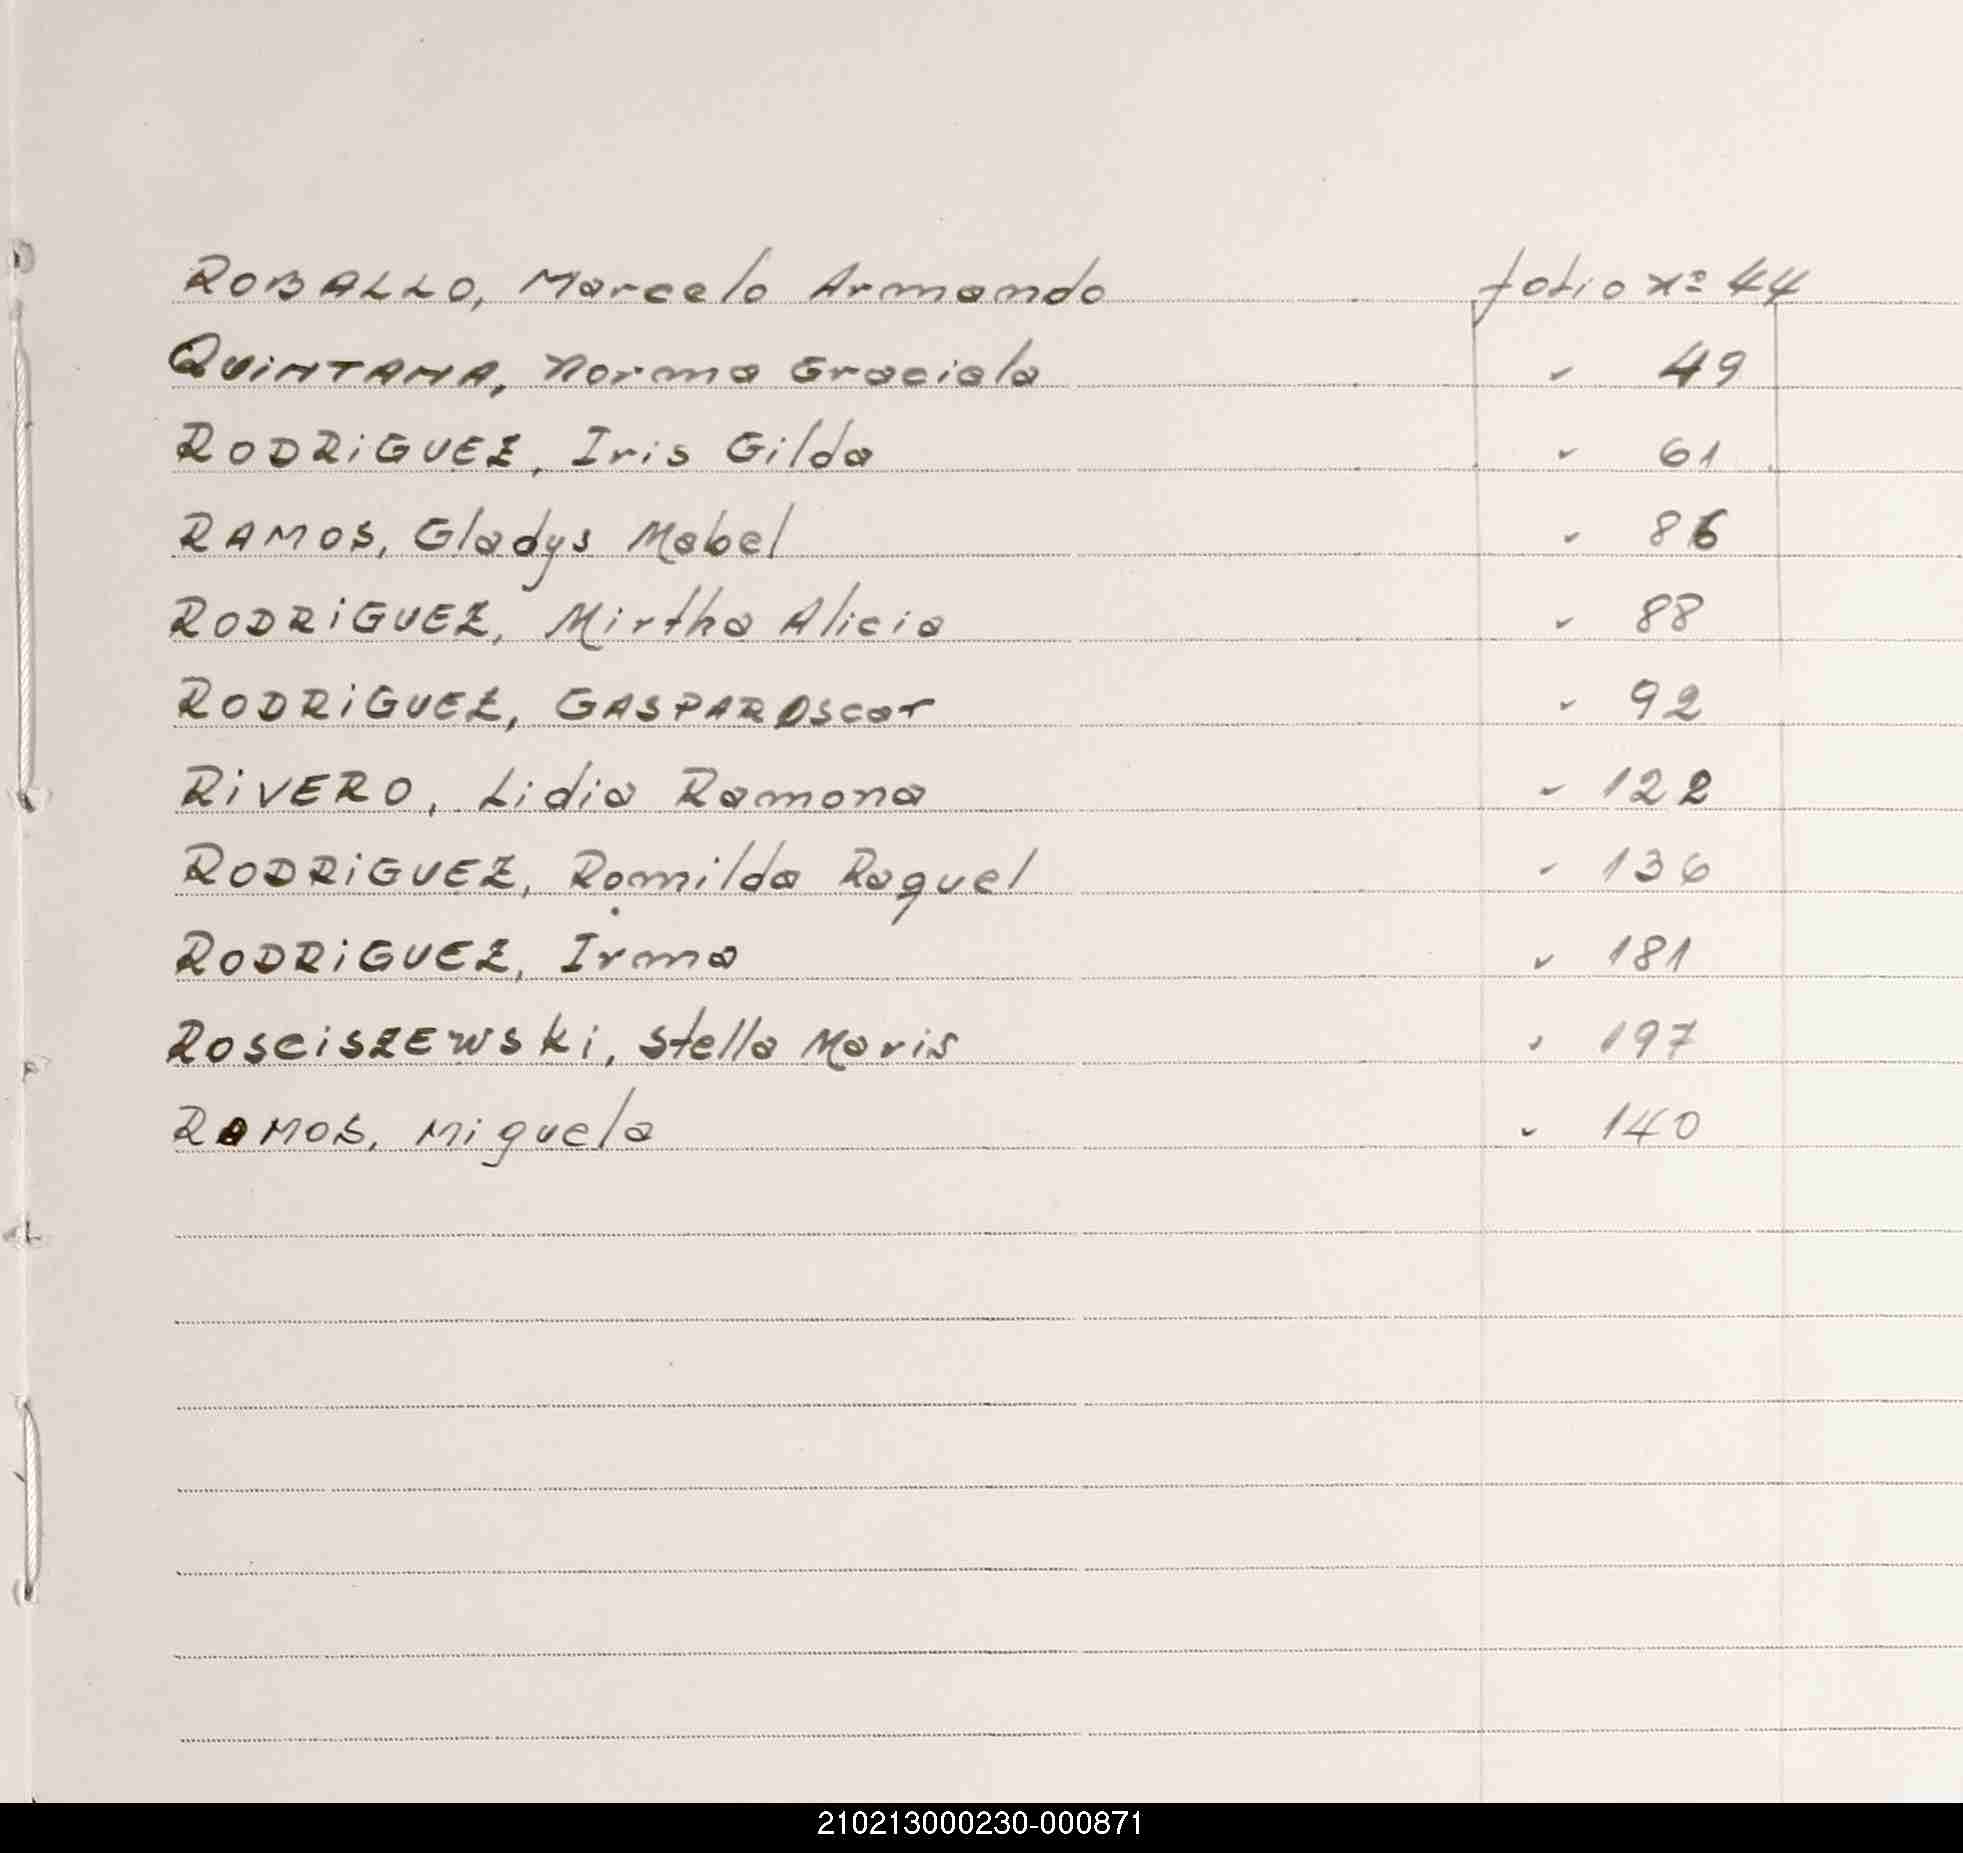 ROBALLO, Marcelo Armando folio Nº 44
QUINTANA, Norma Graciela " 49
RODRIGUEZ, Iris Gilda " 61
RAMOS, Gladys Mabel " 86
RODRIGUEZ, Mirtha Alicia " 88
RODRIGUEZ, GASPAR OScar " 92
RIVERO, Lidia Ramona " 122
RODRIGUEZ, Romilda Raquel " 136
RODRIGUEZ, Irma " 181
ROSCISZEWSKI, Stella Maris " 197
RAMOS, Miguela " 140
210213000230-000871